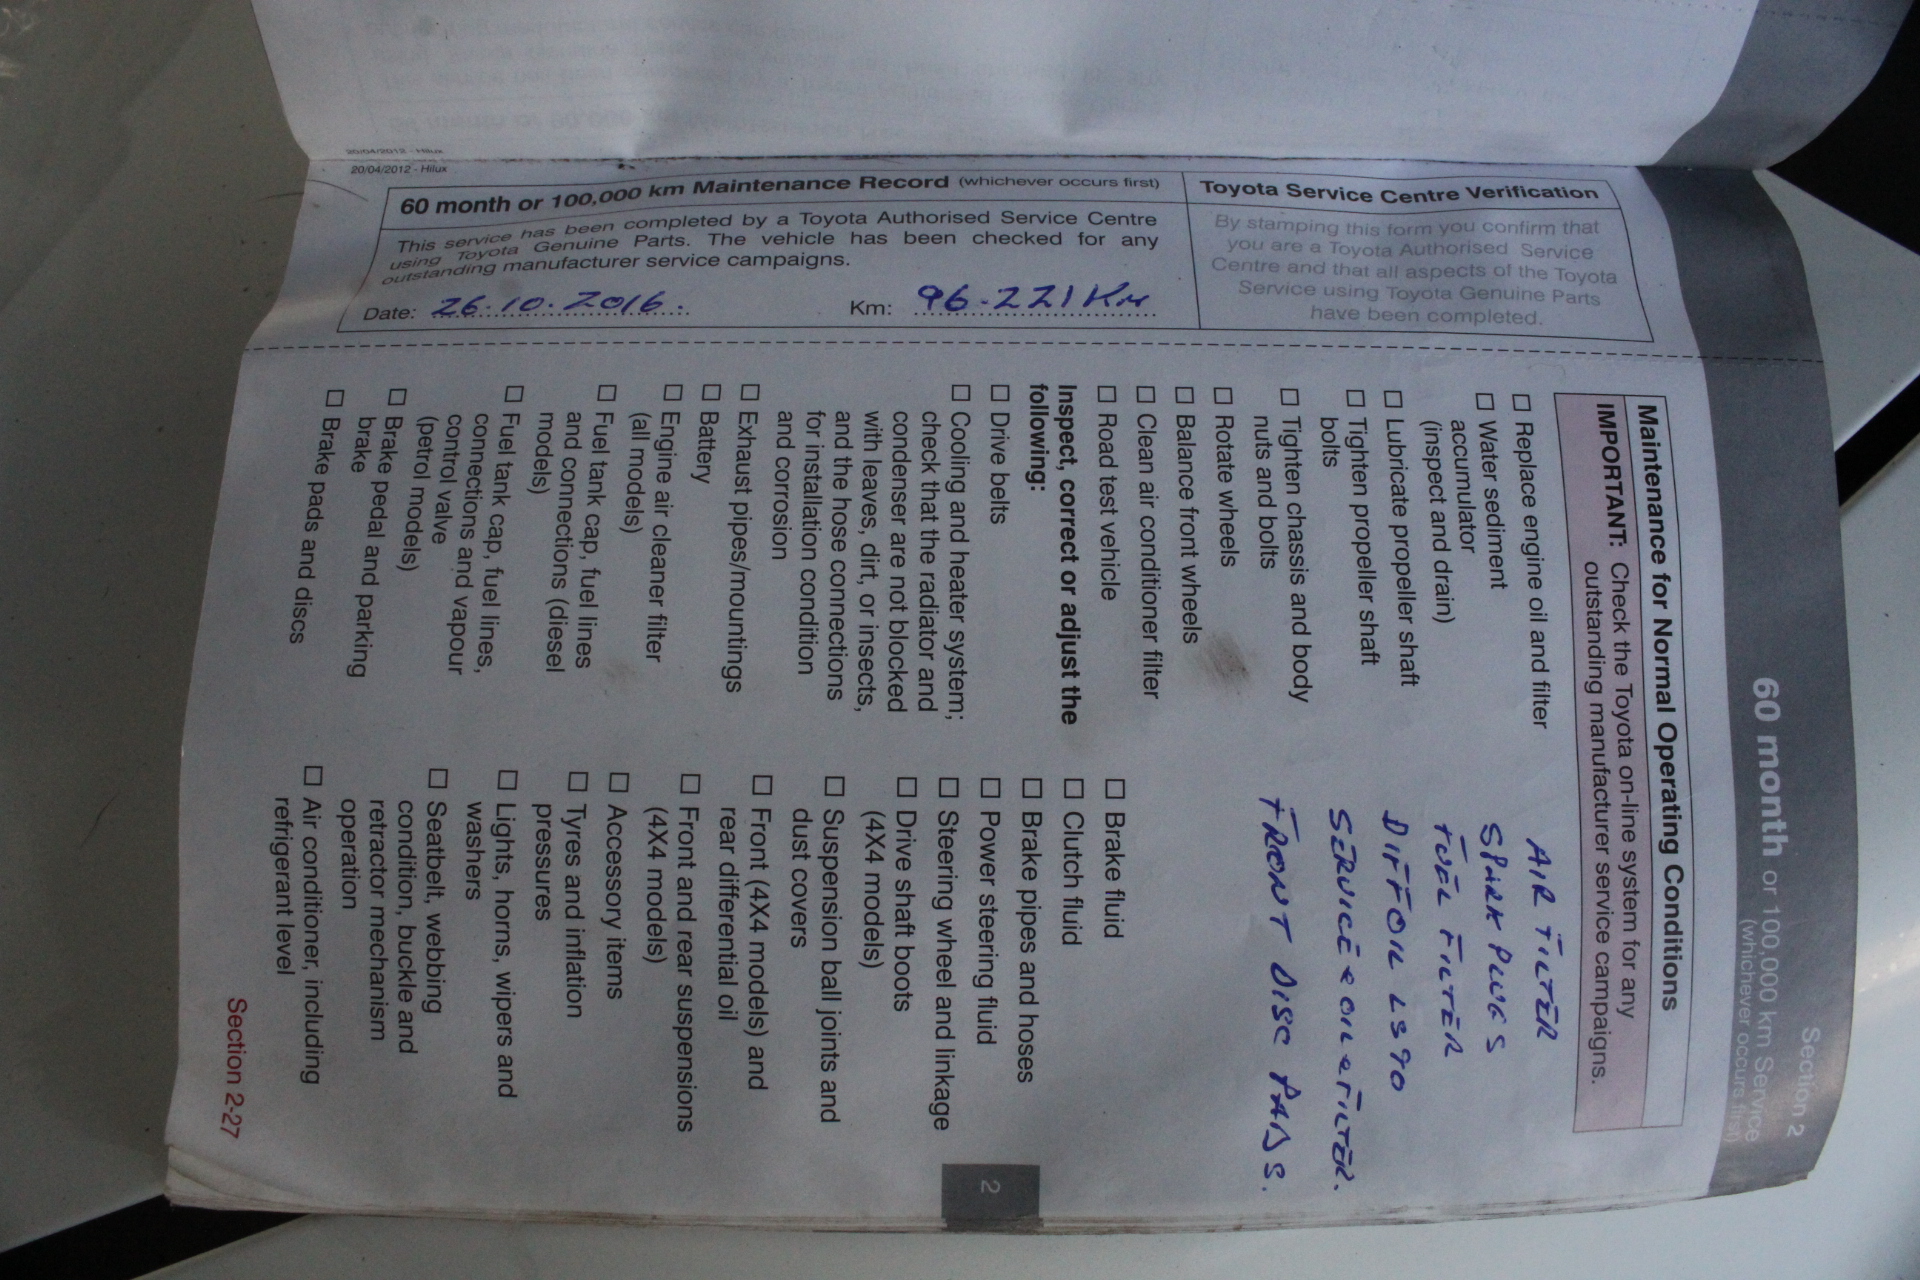 20/04/2012 - Hilux
20/04/2012 - Hilux
60 month or 100,000 km Maintenance Record (whichever occurs first)
This service has been completed by a Toyota Authorised Service Centre
using Toyota Genuine Parts. The vehicle has been checked for any
outstanding manufacturer service campaigns.
Date: 26.10.2016.
Km: 96.221 Km
Toyota Service Centre Verification
By stamping this form you confirm that
you are a Toyota Authorised Service
Centre and that all aspects of the Toyota
Service using Toyota Genuine Parts
have been completed.
Section 2
60 month or 100,000 km Service
(whichever occurs first)
Maintenance for Normal Operating Conditions
IMPORTANT: Check the Toyota on-line system for any
outstanding manufacturer service campaigns.
☐ Replace engine oil and filter
☐ Water sediment
accumulator
(inspect and drain)
☐ Lubricate propeller shaft
☐ Tighten propeller shaft
bolts
☐ Tighten chassis and body
nuts and bolts
☐ Rotate wheels
☐ Balance front wheels
☐ Clean air conditioner filter
☐ Road test vehicle
Inspect, correct or adjust the
following:
☐ Drive belts
☐ Cooling and heater system;
check that the radiator and
condenser are not blocked
with leaves, dirt, or insects,
and the hose connections
for installation condition
and corrosion
☐ Exhaust pipes/mountings
☐ Battery
☐ Engine air cleaner filter
(all models)
☐ Fuel tank cap, fuel lines
and connections (diesel
models)
☐ Fuel tank cap, fuel lines,
connections and vapour
control valve
(petrol models)
☐ Brake pedal and parking
brake
☐ Brake pads and discs
AIR FILTER
SPARK PLUGS
FUEL FILTER
DIFF OIL LS90
SERVICE OIL & FILTER.
FRONT DISC PADS.
☐ Brake fluid
☐ Clutch fluid
☐ Brake pipes and hoses
☐ Power steering fluid
☐ Steering wheel and linkage
☐ Drive shaft boots
(4X4 models)
☐ Suspension ball joints and
dust covers
☐ Front (4X4 models) and
rear differential oil
☐ Front and rear suspensions
(4X4 models)
☐ Accessory items
☐ Tyres and inflation
pressures
☐ Lights, horns, wipers and
washers
☐ Seatbelt, webbing
condition, buckle and
retractor mechanism
operation
☐ Air conditioner, including
refrigerant level
2
Section 2-27